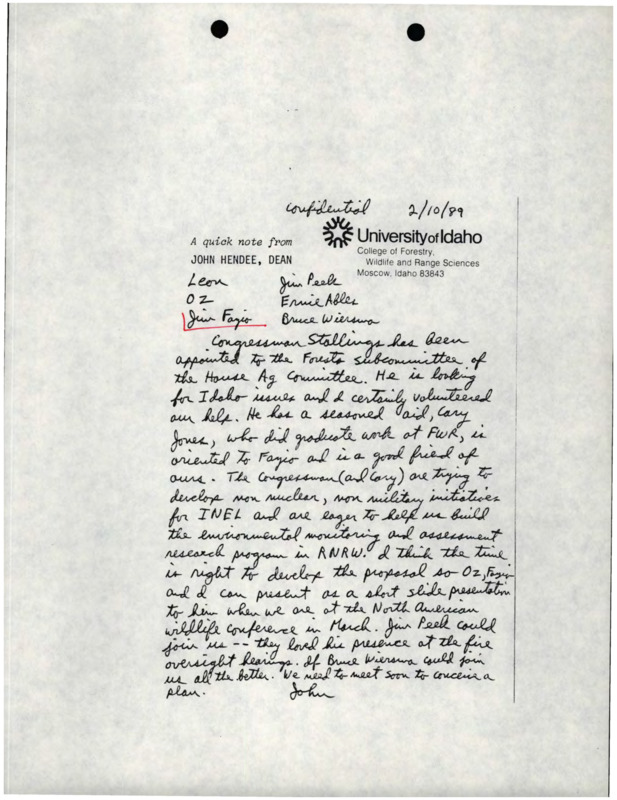 Confidential 2/10/89
A quick note from
JOHN HENDEE, DEAN
University of Idaho
College of Forestry,
Wildlife and Range Sciences
Moscow, Idaho 83843
Leon Jim Peek
OZ Ernie Ables
Jim Fazio Bruce Wiersma
Congressman Stallings has been
appointed to the Forests subcommittee of
the House Ag Committee. He is looking
for Idaho issues and I certainly volunteered
our help. He has a seasoned aid, Cary
Jones, who did graduate work at FWR, is
oriented to Fazio ad is a good friend of
ours. The Congressman (ad Cary) are trying to
develop non nuclear, non military initiatives
for INEL and are eager to help us build
the environmental monitoring and assessment
research program in RNRW. I think the time
is right to develop the proposal so Oz, Fazio
and I can present as a short slide presentation
to him when we are at the North American
wildlife conference in March. Jim Peek could
join us -- they loved his presence at the fire
oversight hearings. If Bruce Wiersma could join
us all the better. We need to meet soon to conceive a
plan. John